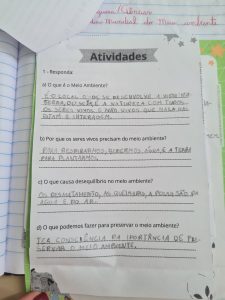 Dia Mundial do Meio ambiente
Atividades
1 - Responda:
a) O que é o Meio Ambiente?
É O LOCAL ONDE SE DESENVOLVE A VIDA NA
TERRA, OU SEJA É A NATUREZA COM TODOS
OS SERES VIVOS E NÃO VIVOS QUE NELA HABI
TAM E INTERAGEM.
b) Por que os seres vivos precisam do meio ambiente?
PARA RESPIRARMOS, BEBERMOS ÁGUA, E A TERRA
PARA PLANTARMOS.
c) O que causa desequilíbrio no meio ambiente?
OS DESMATAMENTO, AS QUEIMADAS, A POLUIÇÃO DA
ÁGUA E DO AR.
d) O que podemos fazer para preservar o meio ambiente?
TER CONSCIÊNCIA DA IMORTÂNCIA DE PRE
SERVAR O MEIO AMBIENTE.